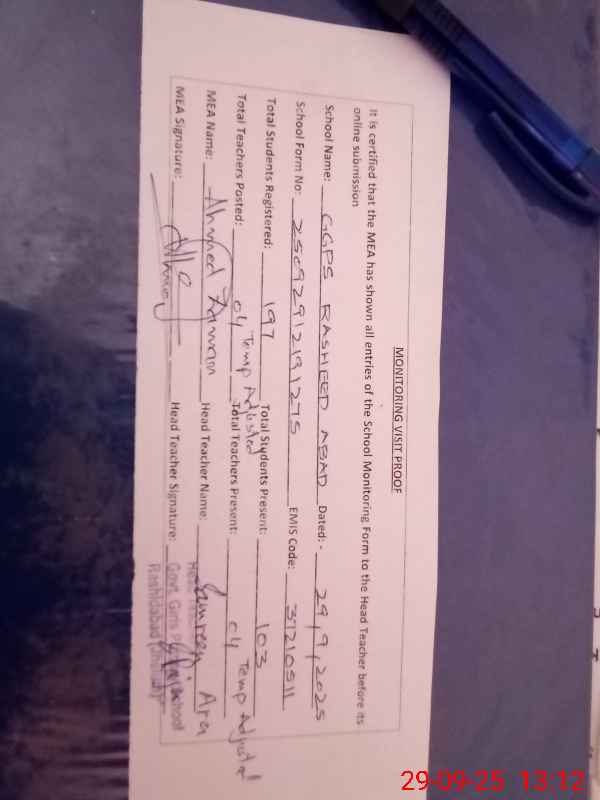 MONITORING VISIT PROOF
It is certified that the MEA has shown all entries of the School Monitoring Form to the Head Teacher before its
online submission
School Name: GGPS RASHEED ABAD Dated: - 29,9,2025
School Form No: 25092912191275 EMIS Code: 37210511
Total Students Registered: 197 Total Students Present: 103
Total Teachers Posted: 04 Temp Adjusted Total Teachers Present: 04 Temp Adjusted
MEA Name: Ahmed Zaman Head Teacher Name: Samreen Ara
MEA Signature: Head Teacher Signature:
Govt. Girls School
Rashidabad
29-09-25 13:12